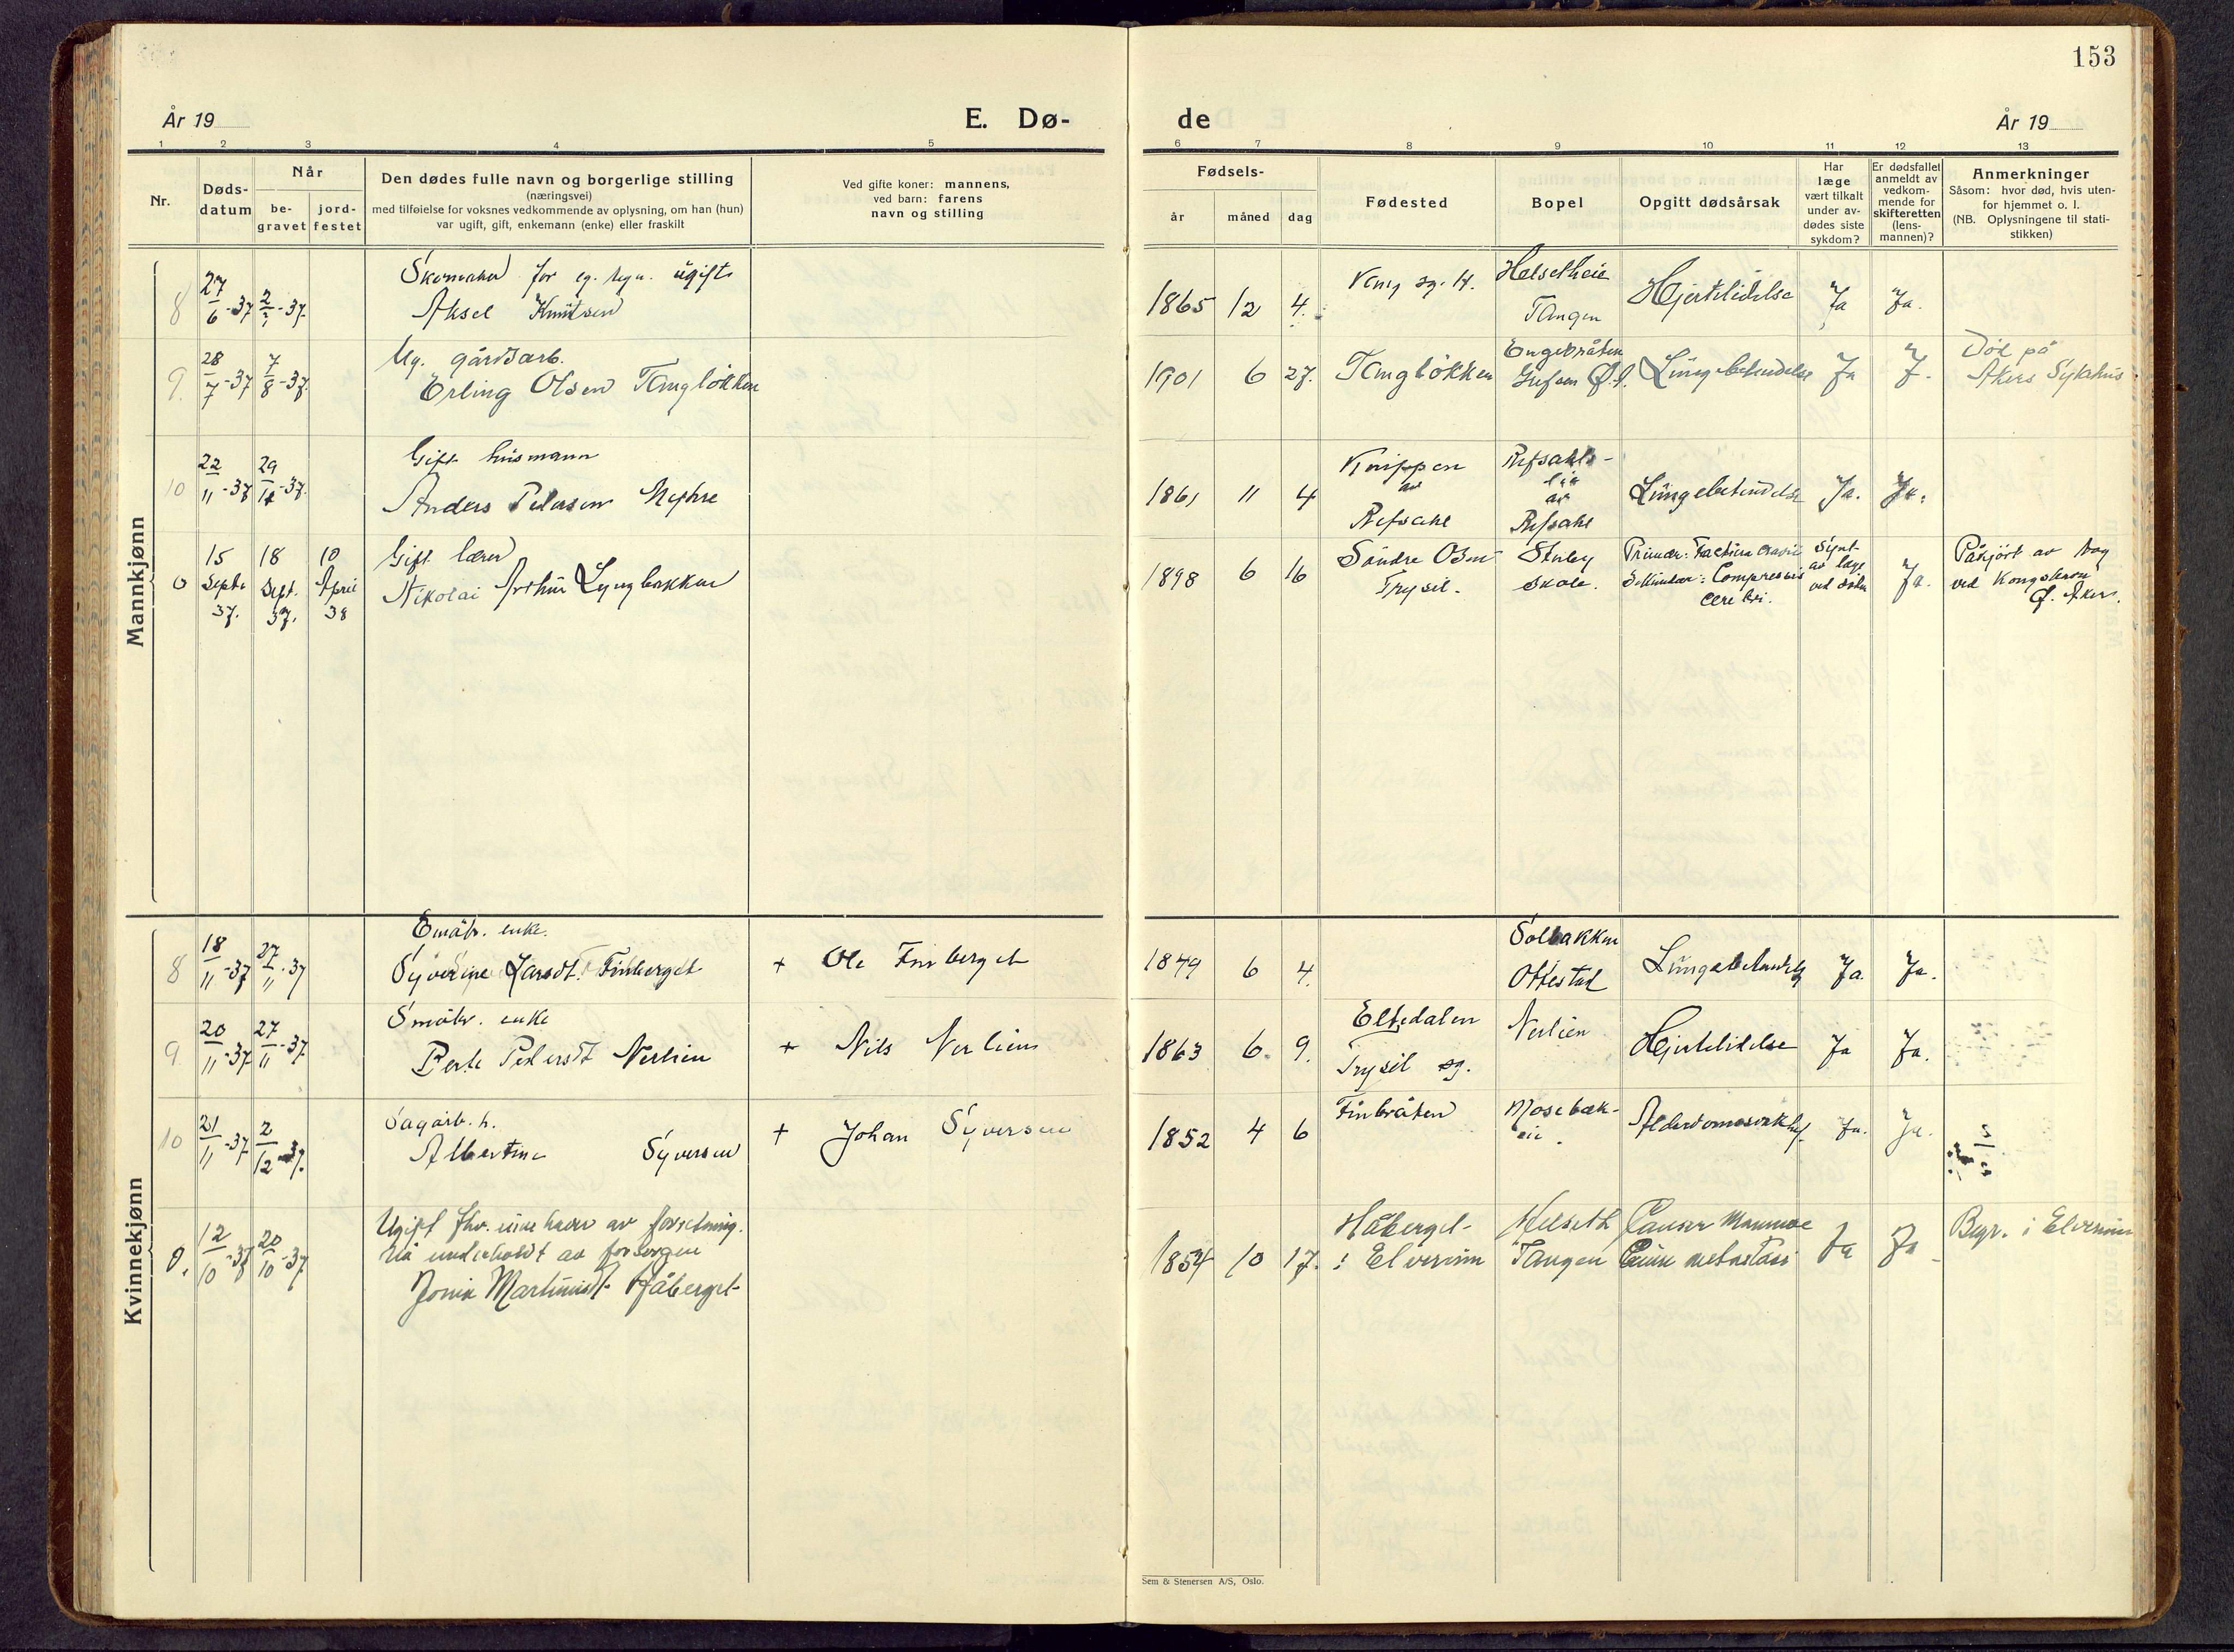 153
År 19
E. Dø-
de
År 19
1 2 3 4 5 6 7 8 9 10 11 12 13
Nr.
Døds-
datum
Når
be-
gravet
jord-
festet
Den dødes fulle navn og borgerlige stilling
(næringsvei)
med tilføielse for voksnes vedkommende av oplysning, om han (hun)
var ugift, gift, enkemann (enke) eller fraskilt
Ved gifte koner: mannens,
ved barn: farens
navn og stilling
Fødsels-
år måned dag
Fødested
Bopel
Opgitt dødsårsak
Har
læge
vært tilkalt
under av-
dødes siste
sykdom?
Er dødsfallet
anmeldt av
vedkom-
mende for
skifteretten
(lens-
mannen)?
Anmerkninger
Såsom: hvor død, hvis uten-
for hjemmet o. l.
(NB. Oplysningene til stati-
stikken)
Mannkjønn
8 27/6-37 2/7-37. Skomaker for eg. regn. ugift
Aksel Knutsen
1865 12 4. Vang sg. H. Helsetheie
Tangen
Hjertelidelse Ja Ja.
9. 28/7-37 7/8-37. Ug. gårdsarb.
Erling Olsen Tangløkken
1901 6 27. Tangløkken Engebråten
Grefsen Ø.A. Lungebetendelse Ja J. Død på
Akers Sykehus
10 22/11-37 29/11-37. Gift husmann
Anders Pedersen Nephre
1861 11 4 Knippen
av
Refsahl
Refsahls-
lia
av
Refsahl
Lungebetendelse Ja. Ja.
0 15 Septe 37. 18 Sept. 37. 10 April 38 Gift lærer
Nikolai Arthur Lyngbakken
1898 6 16 Søndre Osen
Trysil.
Stuby
skole.
Primær: Fractura cranii
Sekundær: Compressio
cerebri.
Synt
av læge
ved døden
Ja. Påkjørt av vog
ved Kongskron
Ø. Aker.
Kvinnekjønn
8 18/11-37 27/11-37 Småbr. enke.
Syverine Larsdt. Finberget
+ Ole Finberget
1879 6 4. Solbakken
Ottestad
Lungebetendelse Ja Ja.
9 20/11-37 27/11-37 Småbr. enke
Berte Pedersdt Nerlien
+ Nils Nerlien
1863 6. 9. Eltdalen
Trysil sg.
Nerlien Hjertelidelse Ja Ja.
10 21/11-37 2/12-37. Sagarb. h.
Albertine Syversen
+ Johan Syversen
1852 4 6 Finbråten Mosebæk-
eie. Alderdomssvakhet Ja. Ja.
0. 12/10-37 20/10-37 Ugift fhv. innehaver av forretning.
nå underholdt av forsorgen
Jonia Martinusdt. Håberget
1854 10 17. Håberget
i Elverum
Helseth
Tangen
Cancer Mammae
cum metastasi
Ja Ja Begr. i Elverum
Sem & Stenersen A/S, Oslo.